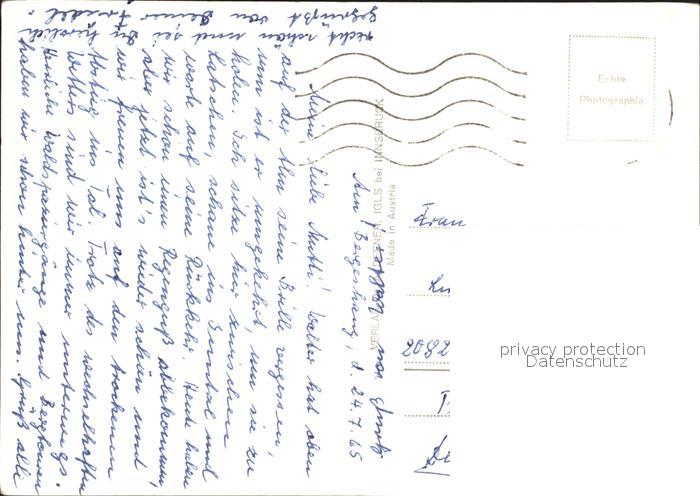 Am Bergeshang, d. 24.7.65
Meine liebe Mutti! Walter hat oben
auf der Alm seine Brille vergessen,
nun ist er umgekehrt, um sie zu
holen. Ich sitze hier zwischen
Latschen, schaue ins Inntal und
warte auf seine Rückkehr. Heute haben
wir schon einen Regenguß abbekommen,
aber jetzt ist's wieder schön und
wir freuen uns auf den trockenen
Abstieg ins Tal. Trotz des wechselhaften
Wetters sind wir immer unterwegs.
Herrliche Waldspaziergänge und Bergtouren
haben wir schon hinter uns. Grüß alle
recht schön und sei Du herzlich
gegrüßt von Deiner Friedel.
VERLAG DEFNER, IGLS bei INNSBRUCK
Made in Austria
Echte
Photographie
Frau
2802
privacy protection
Datenschutz